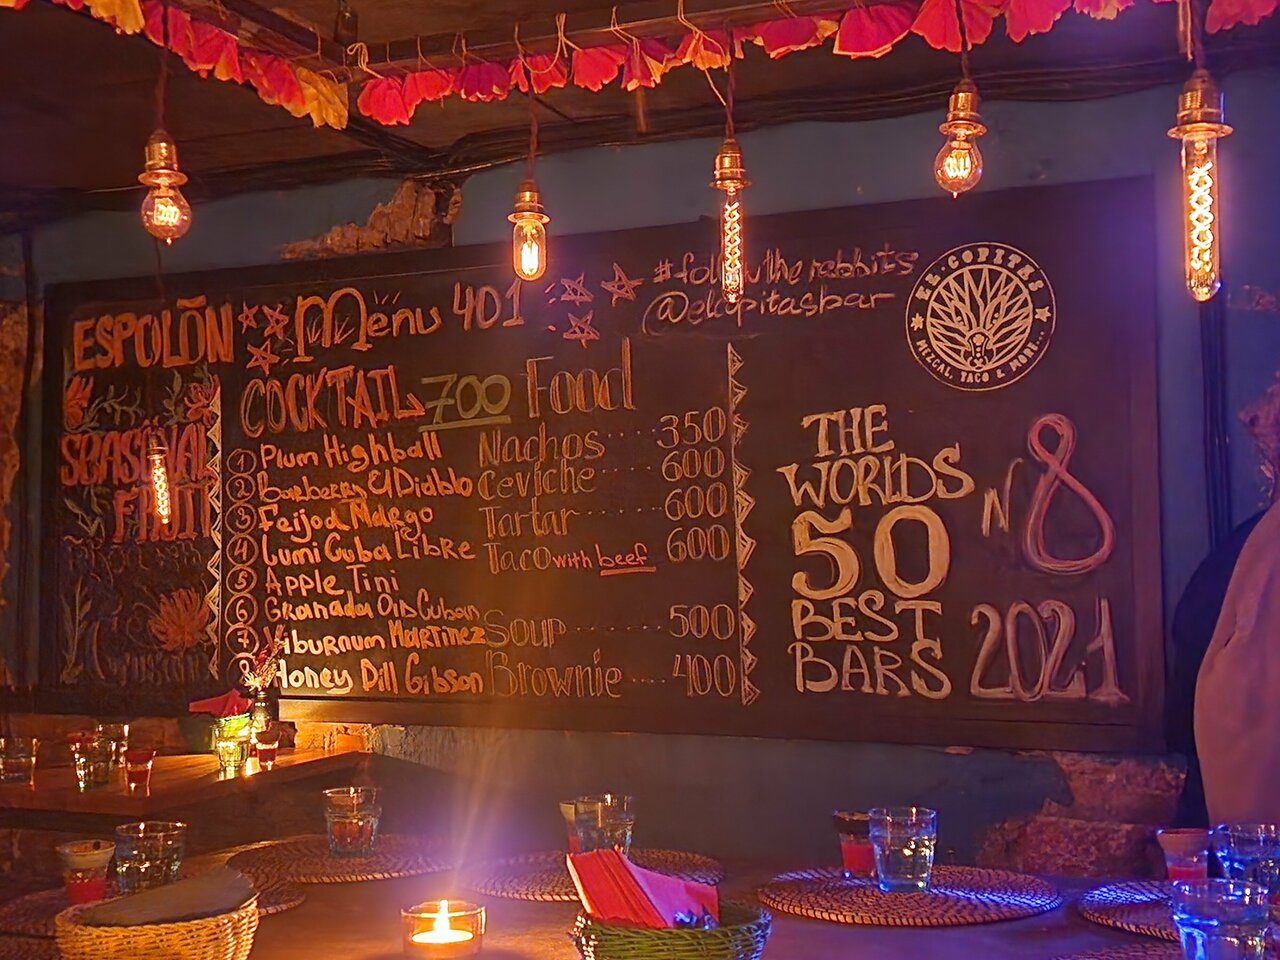 ESPOLÒN
SEASONAL
FRUIT
Menu 401
COCKTAIL 700
1 Plum Highball
2 Barberry El Diablo
3 Feijoa Margo
4 Lumi Cuba Libre
5 Apple Tini
6 Granada Old Cuban
7 Viburnum Martinez
8 Honey Dill Gibson
Food
Nachos ···· 350
Ceviche ···· 600
Tartar ···· 600
Taco with beef 600
Soup ········ 500
Brownie ··· 400
#follow the rabbits
@elcopitasbar
EL·COPITAS
MEZCAL, TACO & MORE...
THE
WORLDS
50
BEST
BARS
N8
2021